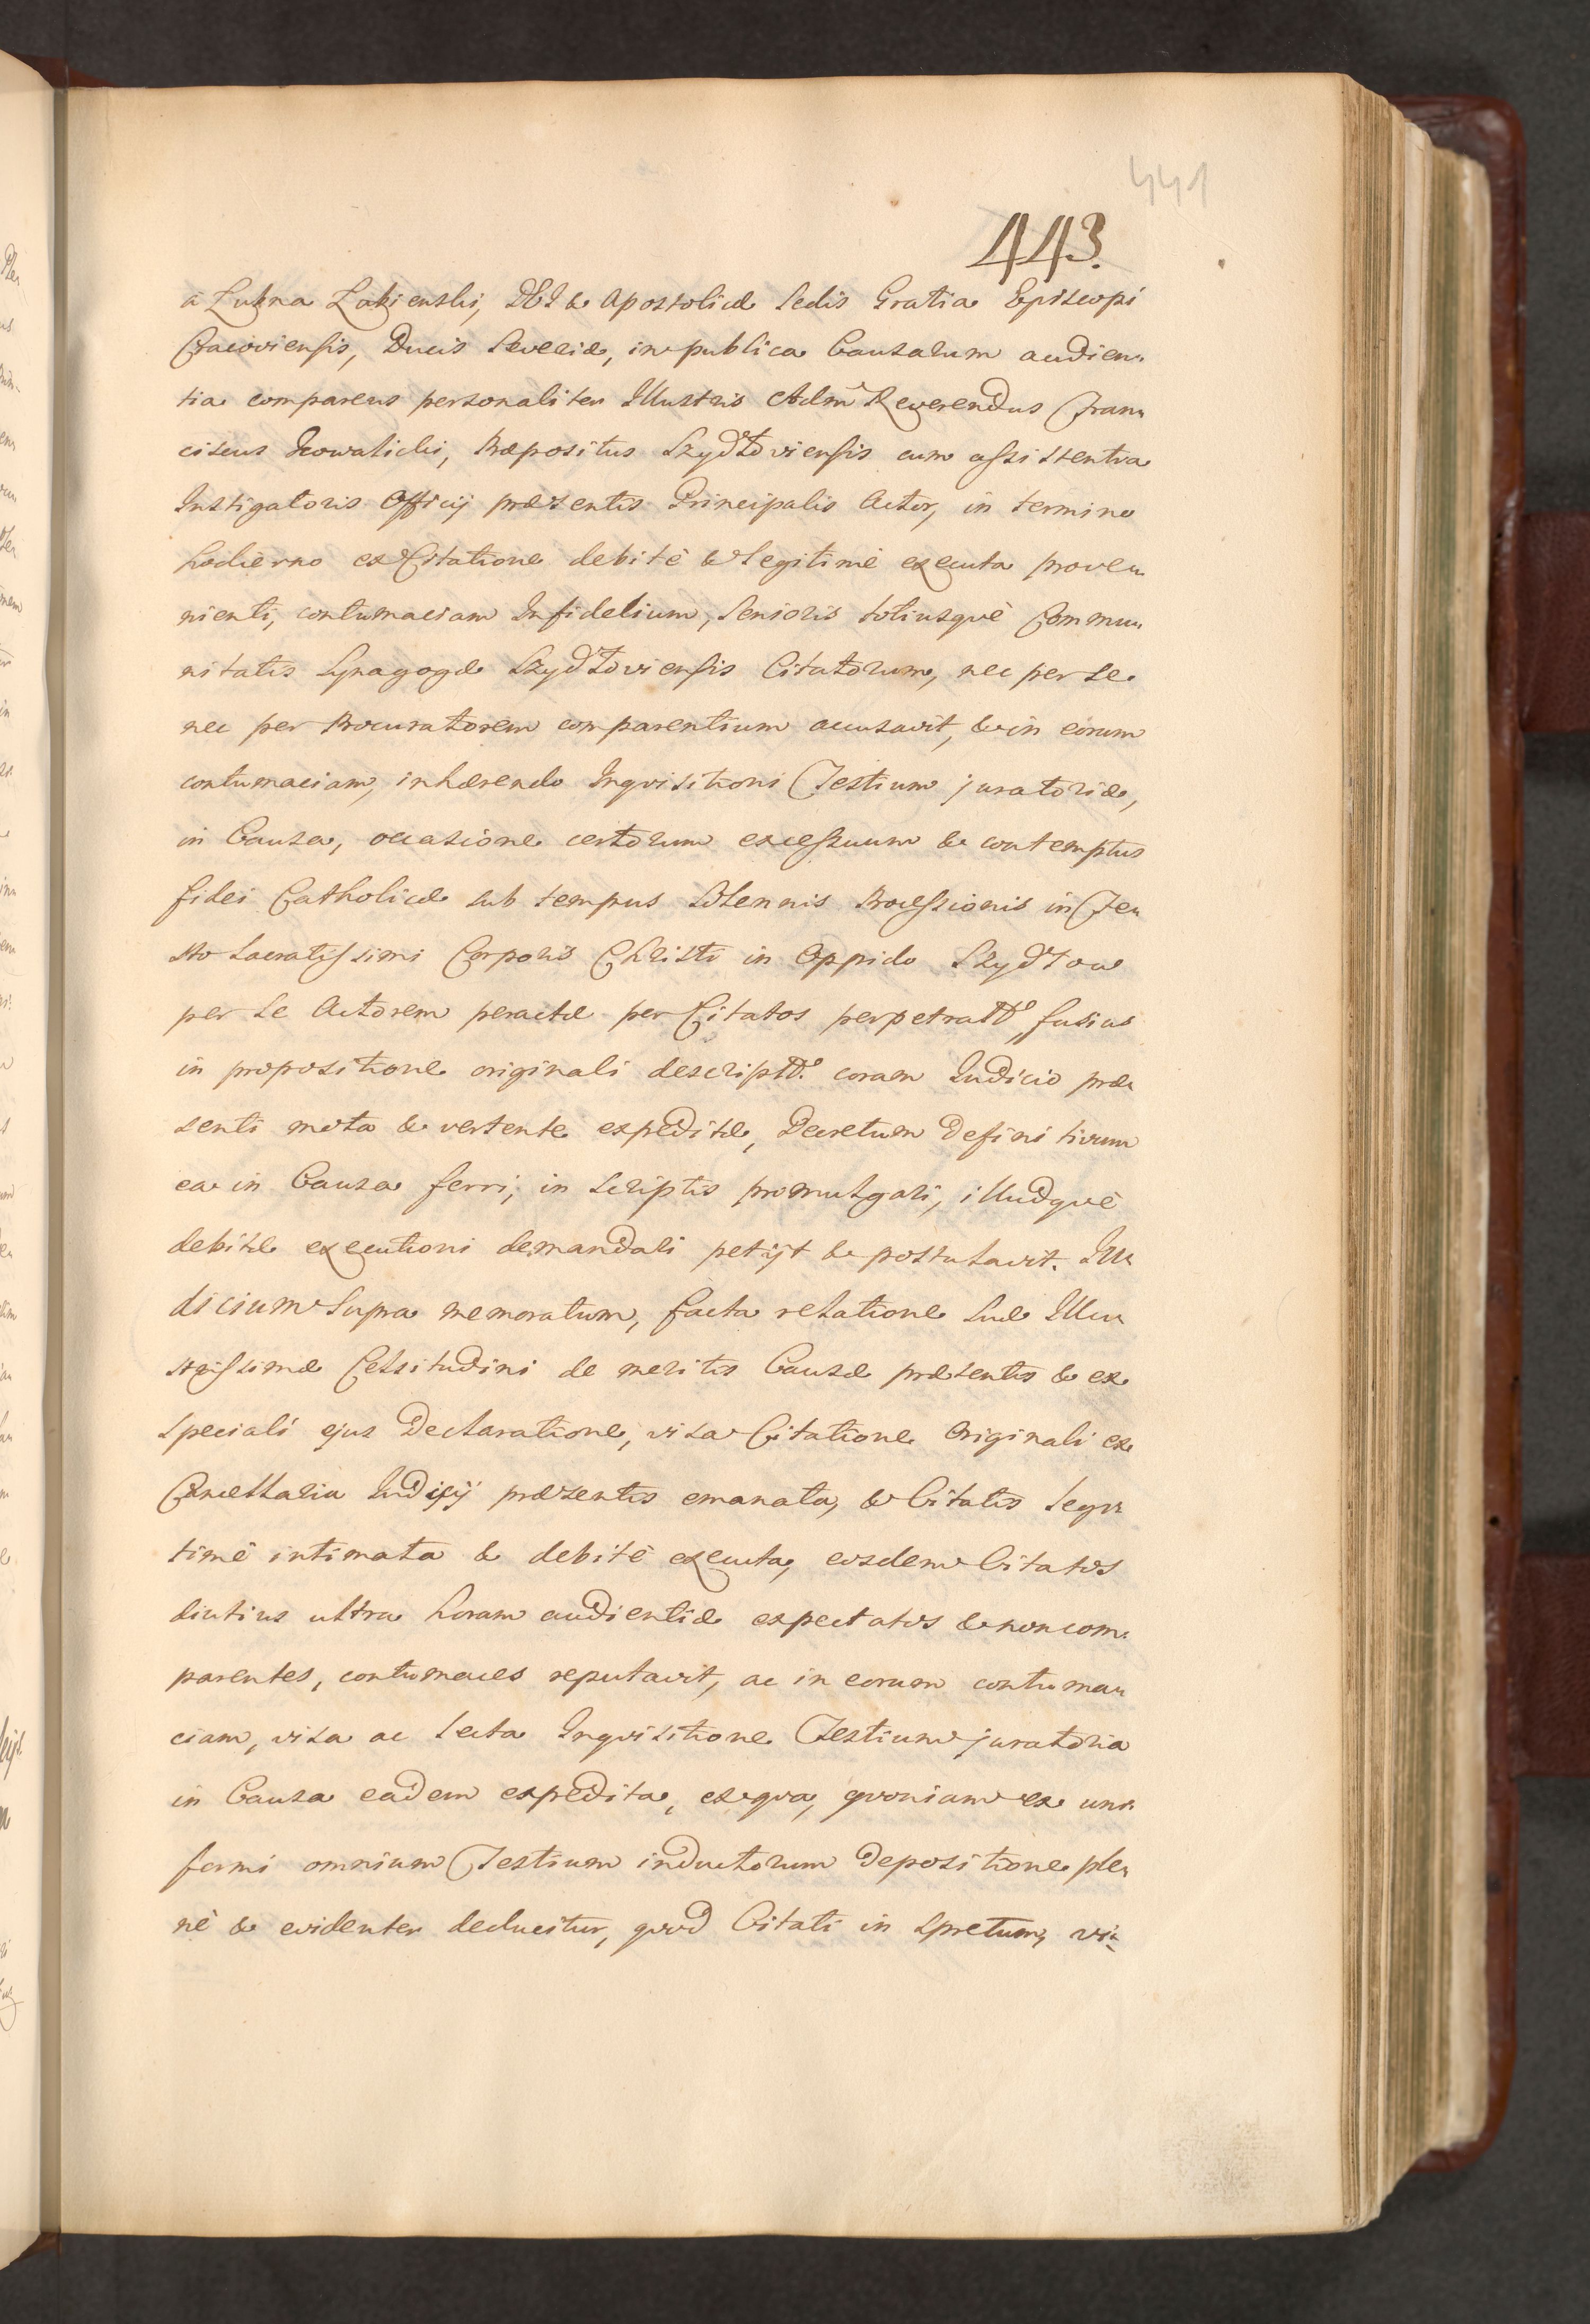 441
443.
à Lubna Łubienski, DEI & Apostolicæ Sedis Gratia Episcopi
Cracoviensis, Ducis Severiæ, in publica Causarum audien-
tia comparens personaliter Illustris Adm Reverendus Fran-
ciscus Nowalicki, Præpositus Szydłoviensis cum assistentia
Instigatoris Officij præsentis Principalis Actor, in termino
hodierno ex Citatione debitè & legitimè executa prove-
nienti, contumaciam Infidelium, Senioris totiusquè Commu-
nitatis Synagogæ Szydłoviensis Citatorum, nec per se
nec per Procuratorem comparentium accusavit, & in eorum
contumaciam, inhærendo Inqvisitioni Testium juratoriæ,
in Causa, occasione certorum excessuum & contemptus
fidei Catholicæ sub tempus Solennis Processionis in Fe-
sto Sacratissimi Corporis Christi in Oppido Szydłow
per se Actorem peractæ per Citatos perpetratt° fusius
in propositione originali descriptt° coram Iudicio præ-
senti mota & vertente expeditæ, Decretum Definitivum
ea in Causa ferri, in scriptis promulgari, illudqvè
debitæ executioni demandari petijt & postulavit. Iu-
dicium supra memoratum, facta relatione Suæ Illu-
strissimæ Celsitudini de meritis Causæ præsentis & ex
speciali ejus Declaratione, visa Citatione Originali ex
Cancellaria Iudicij præsentis emanata, & Citatis legi-
timè intimata & debitè executa, eosdem Citatos
diutius ultra horam audientiæ expectatos & non com-
parentes, contumaces reputavit, ac in eorum contuma-
ciam, visa ac lecta Inqvisitione Testium juratoria
in Causa eadem expedita, ex qva, qvoniam ex uni-
formi omnium Testium inductorum Depositione ple-
nè & evidenter deducitur, qvod Citati in spretum, vi-